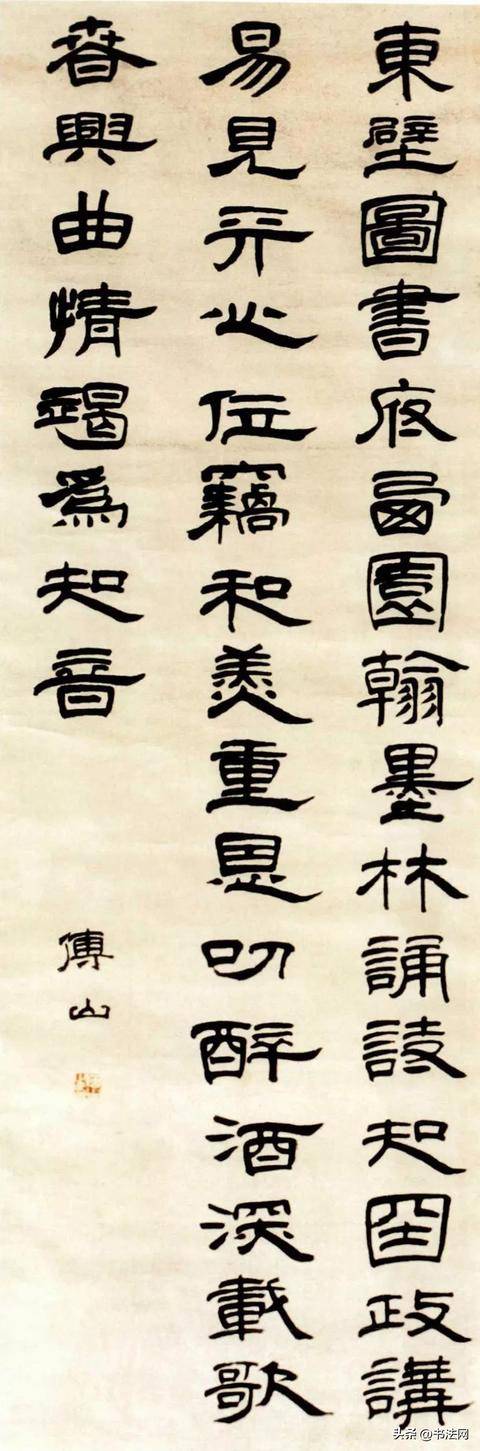 東壁圖書府西園翰墨林誦詩知國政講
易見天心位竊和羹重恩叨醉酒深載歌
春興曲情竭爲知音
傅山
头条@书法网